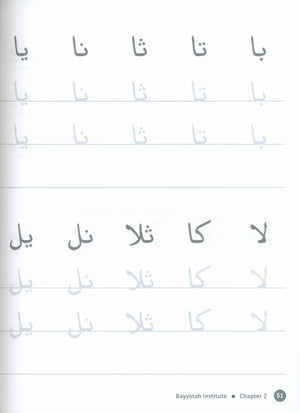 با تا ثا نا يا
با تا ثا نا يا
با تا ثا نا يا
لا كا ثلا نل يل
لا كا ثلا نل يل
لا كا ثلا نل يل
Bayyinah Institute • Chapter 2 51